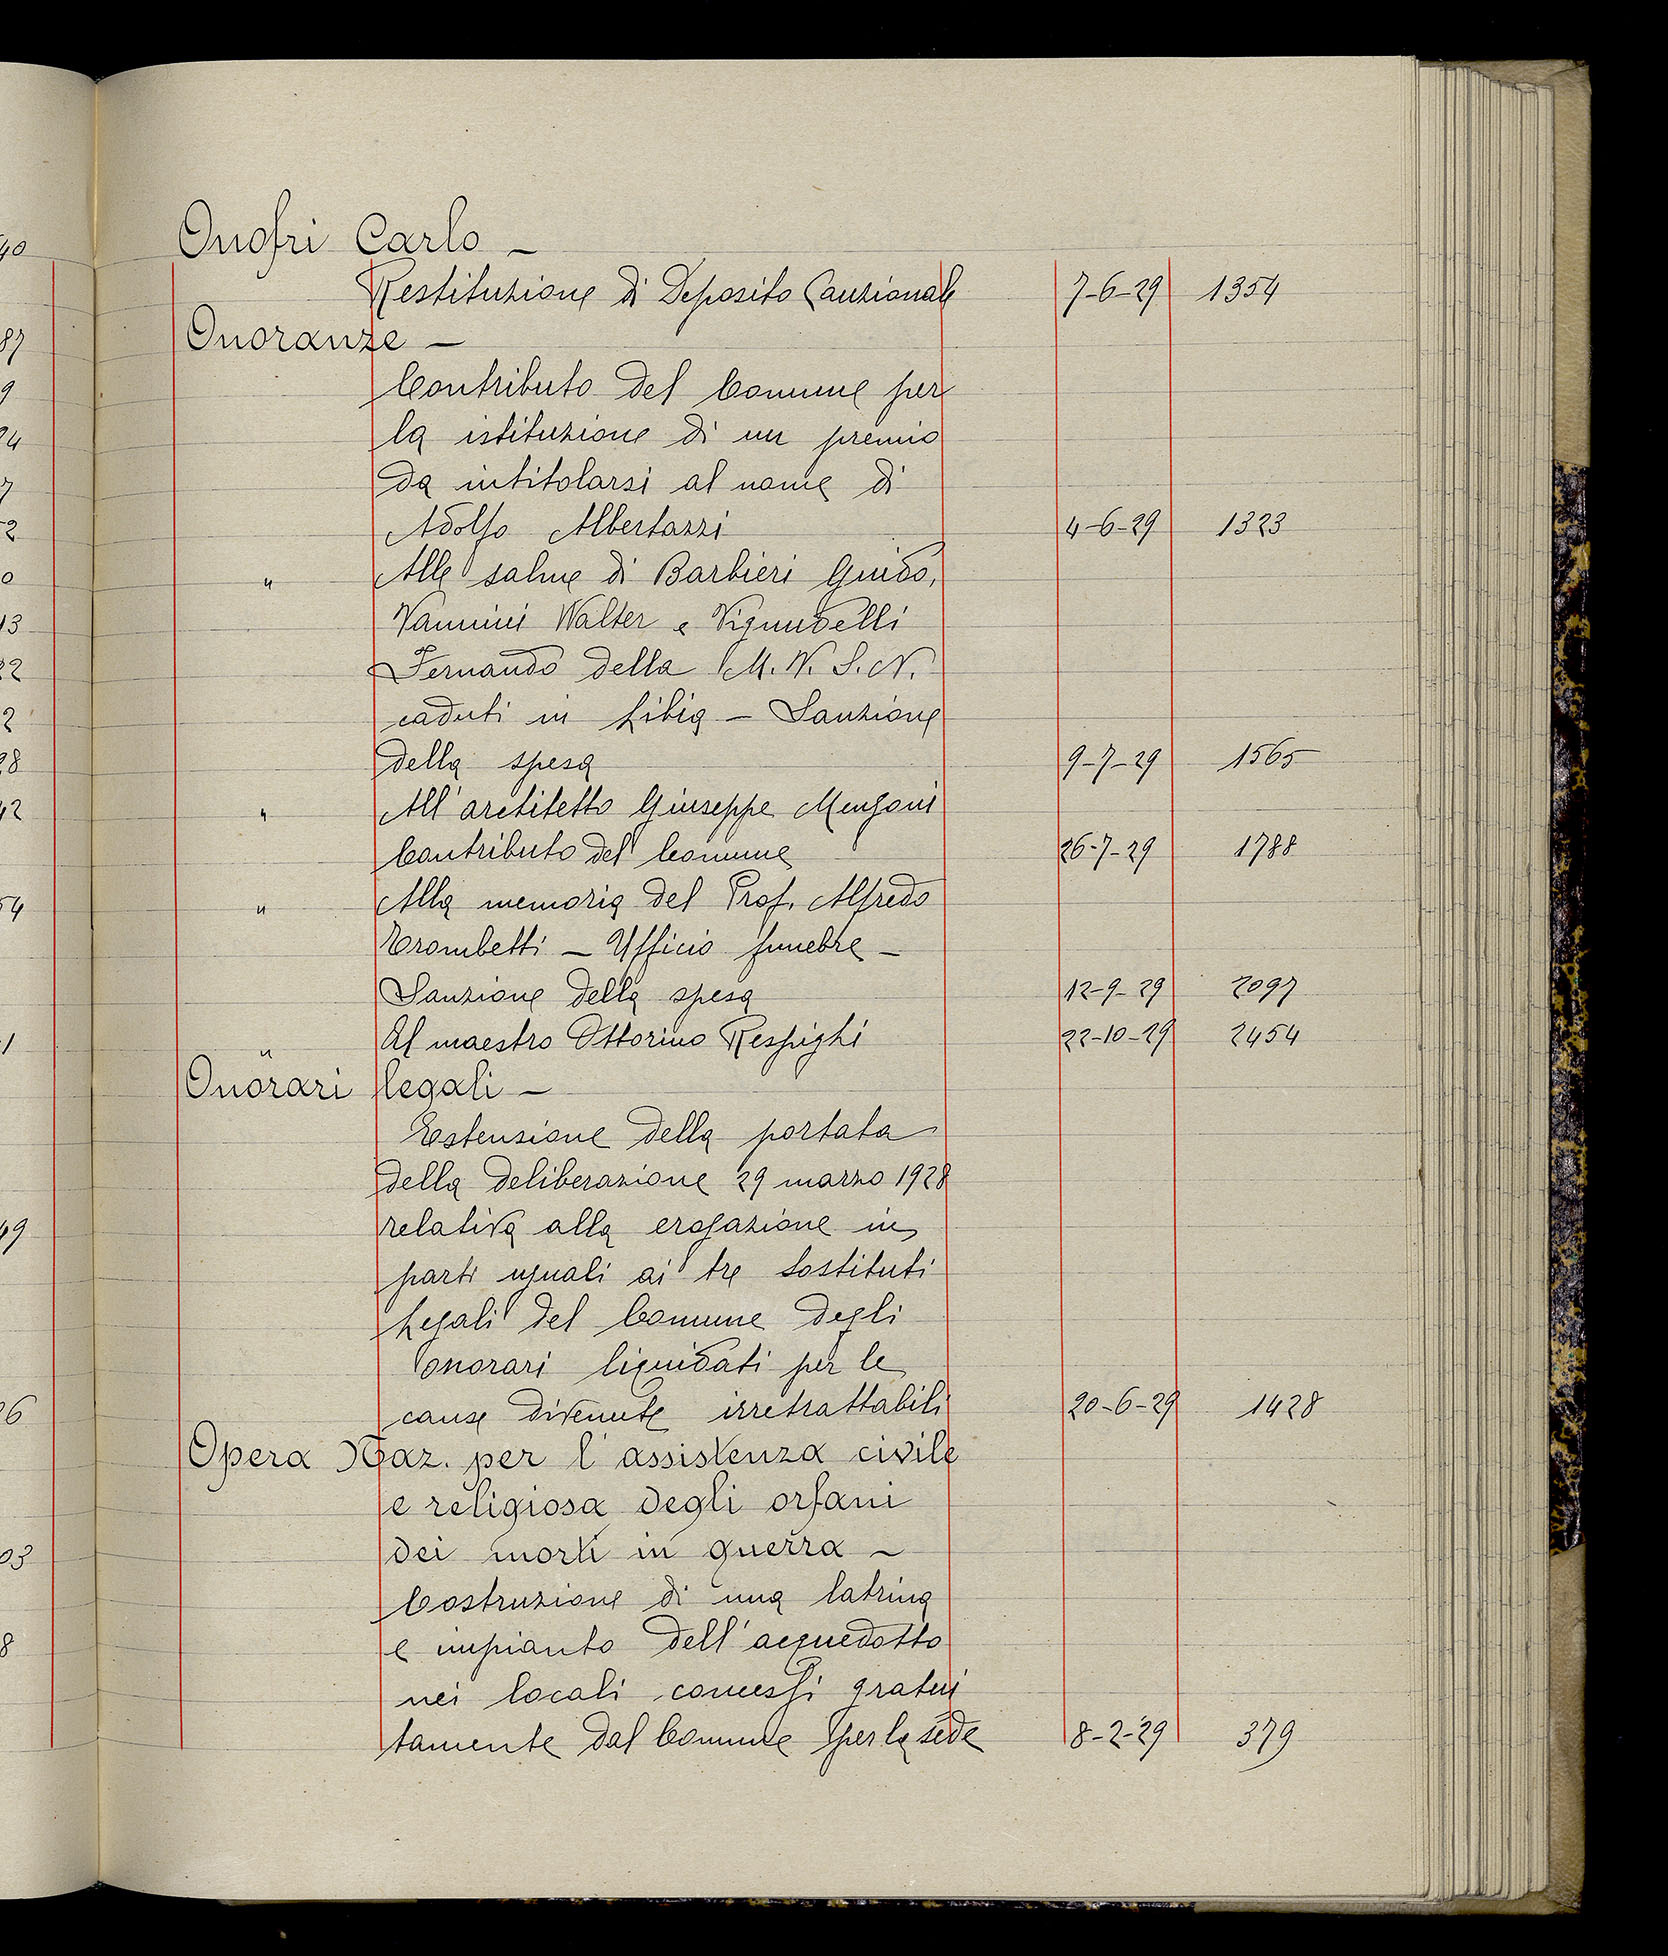 Onofri Carlo -
Restituzione di Deposito Cauzionale 7-6-29 1354
Onoranze -
Contributo del Comune per
la istituzione di un premio
da intitolarsi al nome di
Adolfo Albertazzi 4-6-29 1323
" Alle salme di Barbieri Guido,
Vannini Walter e Vignudelli
Fernando della M.V.S.N.
caduti in Libia - Sanzione
della spesa 9-7-29 1565
" All'architetto Giuseppe Mengoni
Contributo del Comune 26-7-29 1788
" Alla memoria del Prof. Alfredo
Trombetti - Ufficio funebre -
Sanzione della spesa 12-9-29 2097
" Al maestro Ottorino Respighi 22-10-29 2454
Onorari legali -
Estensione della portata
della deliberazione 29 marzo 1928
relativa alla erogazione in
parti uguali ai tre Sostituti
Legali del Comune degli
onorari liquidati per le
cause divenute irretrattabili 20-6-29 1428
Opera Naz. per l'assistenza civile
e religiosa degli orfani
dei morti in guerra -
Costruzione di una latrina
e impianto dell'acquedotto
nei locali concessi gratui
tamente dal Comune per la sede 8-2-29 379